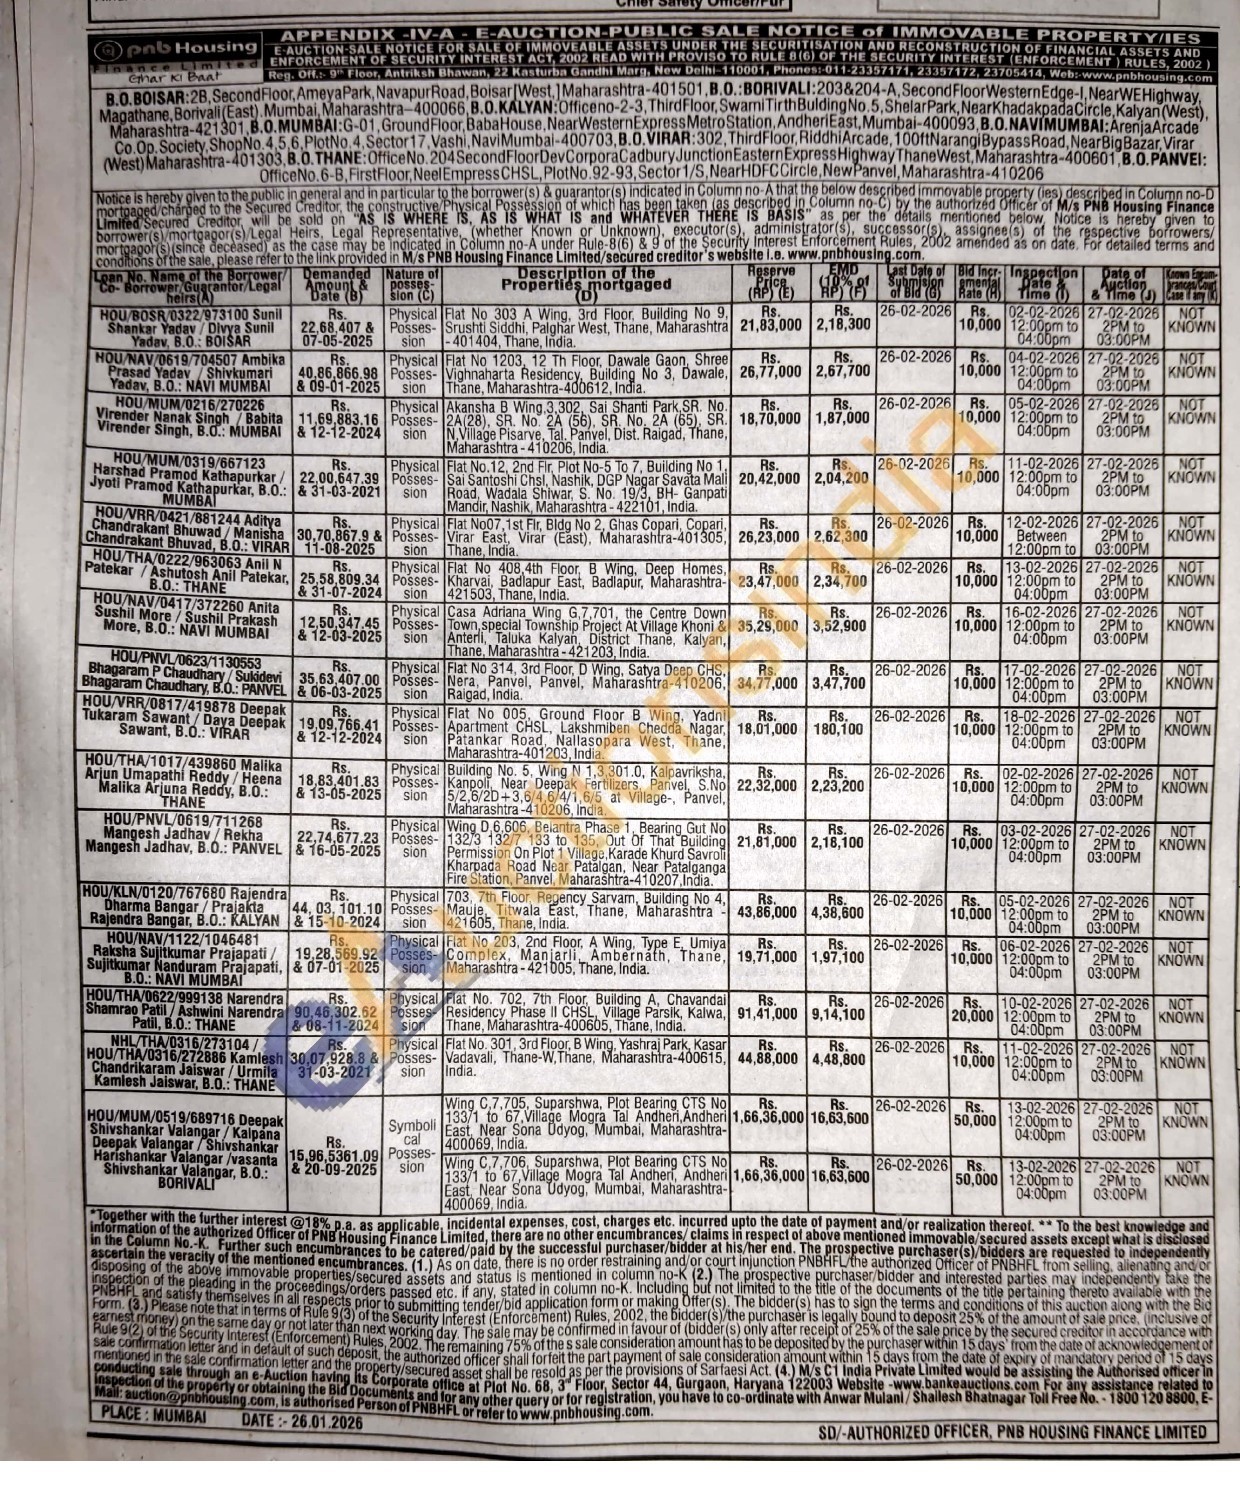 Chief Safety Officer/Pur
pnb Housing
Finance Limited
Ghar Ki Baat
APPENDIX -IV-A - E-AUCTION-PUBLIC SALE NOTICE of IMMOVABLE PROPERTY/IES
E-AUCTION-SALE NOTICE FOR SALE OF IMMOVEABLE ASSETS UNDER THE SECURITISATION AND RECONSTRUCTION OF FINANCIAL ASSETS AND
ENFORCEMENT OF SECURITY INTEREST ACT, 2002 READ WITH PROVISO TO RULE 8(6) OF THE SECURITY INTEREST (ENFORCEMENT ) RULES, 2002 )
Reg. Off.:- 9th Floor, Antriksh Bhawan, 22 Kasturba Gandhi Marg, New Delhi-110001, Phones:-011-23357171, 23357172, 23705414, Web:-www.pnbhousing.com
B.O.BOISAR:2B,SecondFloor,AmeyaPark,NavapurRoad,Boisar[West,]Maharashtra-401501,B.O.:BORIVALI:203&204-A,SecondFloorWesternEdge-I,NearWEHighway,
Magathane,Borivali(East),Mumbai,Maharashtra-400066,B.O.KALYAN:Officeno-2-3,ThirdFloor,SwamiTirthBuldingNo.5,ShelarPark,NearKhadakpadaCircle,Kalyan(West),
Maharashtra-421301,B.O.MUMBAI:G-01,GroundFloor,BabaHouse,NearWesternExpressMetroStation,AndheriEast,Mumbai-400093,B.O.NAVIMUMBAI:ArenjaArcade
Co.Op.Society,ShopNo.4,5,6,PlotNo.4,Sector17,Vashi,NaviMumbai-400703,B.O.VIRAR:302,ThirdFloor,RiddhiArcade,100ftNarangiBypassRoad,NearBigBazar,Virar
(West)Maharashtra-401303,B.O.THANE:OfficeNo.204SecondFloorDevCorporaCadburyJunctionEasternExpressHighwayThaneWest,Maharashtra-400601,B.O.PANVEI:
OfficeNo.6-B,FirstFloor,NeelEmpressCHSL,PlotNo.92-93,Sector1/S,NearHDFCCircle,NewPanvel,Maharashtra-410206
Notice is hereby given to the public in general and in particular to the borrower(s) & guarantor(s) indicated in Column no-A that the below described immovable property (ies) described in Column no-D
mortgaged/charged to the Secured Creditor, the constructive/Physical Possession of which has been taken (as described in Column no-C) by the authorized Officer of M/s PNB Housing Finance
Limited/Secured Creditor, will be sold on "AS IS WHERE IS, AS IS WHAT IS and WHATEVER THERE IS BASIS" as per the details mentioned below. Notice is hereby given to
borrower(s)/mortgagor(s)/Legal Heirs, Legal Representative, (whether Known or Unknown), executor(s), administrator(s), successor(s), assignee(s) of the respective borrowers/
mortgagor(s)(since deceased) as the case may be indicated in Column no-A under Rule-8(6) & 9 of the Security Interest Enforcement Rules, 2002 amended as on date. For detailed terms and
conditions of the sale, please refer to the link provided in M/s PNB Housing Finance Limited/secured creditor's website i.e. www.pnbhousing.com.
Loan No. Name of the Borrower/ Co- Borrower/Guarantor/Legal heirs(A)
Demanded Amount & Date (B)
Nature of posses-sion (C)
Description of the Properties mortgaged (D)
Reserve Price (RP) (E)
EMD (10% of RP) (F)
Last Date of Submission of Bid (G)
Bid Incr-emental Rate (H)
Inspection Date & Time (I)
Date of Auction & Time (J)
Known Encum-brances/Court Case if any (K)
HOU/BOSR/0322/973100 Sunil Shankar Yadav / Divya Sunil Yadav, B.O.: BOISAR
Rs. 22,68,407 & 07-05-2025
Physical Posses-sion
Flat No 303 A Wing, 3rd Floor, Building No 9, Srushti Siddhi, Palghar West, Thane, Maharashtra - 401404, Thane, India.
Rs. 21,83,000
Rs. 2,18,300
26-02-2026
Rs. 10,000
02-02-2026 12:00pm to 04:00pm
27-02-2026 2PM to 03:00PM
NOT KNOWN
HOU/NAV/0619/704507 Ambika Prasad Yadav / Shivkumari Yadav, B.O.: NAVI MUMBAI
Rs. 40,86,866.98 & 09-01-2025
Physical Posses-sion
Flat No 1203, 12 Th Floor, Dawale Gaon, Shree Vighnaharta Residency, Building No 3, Dawale, Thane, Maharashtra-400612, India.
Rs. 26,77,000
Rs. 2,67,700
26-02-2026
Rs. 10,000
04-02-2026 12:00pm to 04:00pm
27-02-2026 2PM to 03:00PM
NOT KNOWN
HOU/MUM/0216/270226 Virender Nanak Singh / Babita Virender Singh, B.O.: MUMBAI
Rs. 11,69,883.16 & 12-12-2024
Physical Posses-sion
Akansha B Wing,3,302, Sai Shanti Park,SR. No. 2A(28), SR. No. 2A (56), SR. No. 2A (65), SR. N,Village Pisarve, Tal. Panvel, Dist. Raigad, Thane, Maharashtra - 410206, India.
Rs. 18,70,000
Rs. 1,87,000
26-02-2026
Rs. 10,000
05-02-2026 12:00pm to 04:00pm
27-02-2026 2PM to 03:00PM
NOT KNOWN
HOU/MUM/0319/667123 Harshad Pramod Kathapurkar / Jyoti Pramod Kathapurkar, B.O.: MUMBAI
Rs. 22,00,647.39 & 31-03-2021
Physical Posses-sion
Flat No.12, 2nd Flr, Plot No-5 To 7, Building No 1, Sai Santoshi Chsl, Nashik, DGP Nagar Savata Mali Road, Wadala Shiwar, S. No. 19/3, BH- Ganpati Mandir, Nashik, Maharashtra - 422101, India.
Rs. 20,42,000
Rs. 2,04,200
26-02-2026
Rs. 10,000
11-02-2026 12:00pm to 04:00pm
27-02-2026 2PM to 03:00PM
NOT KNOWN
HOU/VRR/0421/881244 Aditya Chandrakant Bhuwad / Manisha Chandrakant Bhuvad, B.O.: VIRAR
Rs. 30,70,867.9 & 11-08-2025
Physical Posses-sion
Flat No07,1st Flr, Bldg No 2, Ghas Copari, Copari, Virar East, Virar (East), Maharashtra-401305, Thane, India.
Rs. 26,23,000
Rs. 2,62,300
26-02-2026
Rs. 10,000
12-02-2026 Between 12:00pm to
27-02-2026 2PM to 03:00PM
NOT KNOWN
HOU/THA/0222/963063 Anil N Patekar / Ashutosh Anil Patekar, B.O.: THANE
Rs. 25,58,809.34 & 31-07-2024
Physical Posses-sion
Flat No 408,4th Floor, B Wing, Deep Homes, Kharvai, Badlapur East, Badlapur, Maharashtra-421503, Thane, India.
Rs. 23,47,000
Rs. 2,34,700
26-02-2026
Rs. 10,000
13-02-2026 12:00pm to 04:00pm
27-02-2026 2PM to 03:00PM
NOT KNOWN
HOU/NAV/0417/372260 Anita Sushil More / Sushil Prakash More, B.O.: NAVI MUMBAI
Rs. 12,50,347.45 & 12-03-2025
Physical Posses-sion
Casa Adriana Wing G,7,701, the Centre Down Town,special Township Project At Village Khoni & Anterli, Taluka Kalyan, District Thane, Kalyan, Thane, Maharashtra-421203, India.
Rs. 35,29,000
Rs. 3,52,900
26-02-2026
Rs. 10,000
16-02-2026 12:00pm to 04:00pm
27-02-2026 2PM to 03:00PM
NOT KNOWN
HOU/PNVL/0623/1130553 Bhagaram P Chaudhary / Sukidevi Bhagaram Chaudhary, B.O.: PANVEL
Rs. 35,63,407.00 & 06-03-2025
Physical Posses-sion
Flat No 314, 3rd Floor, D Wing, Satya Deep CHS, Nera, Panvel, Panvel, Maharashtra-410206, Raigad, India.
Rs. 34,77,000
Rs. 3,47,700
26-02-2026
Rs. 10,000
17-02-2026 12:00pm to 04:00pm
27-02-2026 2PM to 03:00PM
NOT KNOWN
HOU/VRR/0817/419878 Deepak Tukaram Sawant / Daya Deepak Sawant, B.O.: VIRAR
Rs. 19,09,766.41 & 12-12-2024
Physical Posses-sion
Flat No 005, Ground Floor B Wing, Yadni Apartment CHSL, Lakshmiben Chedda Nagar, Patankar Road, Nallasopara West, Thane, Maharashtra-401203, India.
Rs. 18,01,000
Rs. 180,100
26-02-2026
Rs. 10,000
18-02-2026 12:00pm to 04:00pm
27-02-2026 2PM to 03:00PM
NOT KNOWN
HOU/THA/1017/439860 Malika Arjun Umapathi Reddy / Heena Malika Arjuna Reddy, B.O.: THANE
Rs. 18,83,401.83 & 13-05-2025
Physical Posses-sion
Building No. 5, Wing N 1,3,301.0, Kalpavriksha, Kanpoli, Near Deepak Fertilizers, Panvel, S.No 5/2,6/2D+3,6/4,6/4/1,6/5 at Village-, Panvel, Maharashtra -410206, India.
Rs. 22,32,000
Rs. 2,23,200
26-02-2026
Rs. 10,000
02-02-2026 12:00pm to 04:00pm
27-02-2026 2PM to 03:00PM
NOT KNOWN
HOU/PNVL/0619/711268 Mangesh Jadhav / Rekha Mangesh Jadhav, B.O.: PANVEL
Rs. 22,74,677.23 & 16-05-2025
Physical Posses-sion
Wing D,6,606, Belantra Phase 1, Bearing Gut No 132/3 132/7 133 to 135, Out Of That Building Permission On Plot 1 Village,Karade Khurd Savroli Kharpada Road Near Patalgan, Near Patalganga Fire Station, Panvel, Maharashtra-410207,India.
Rs. 21,81,000
Rs. 2,18,100
26-02-2026
Rs. 10,000
03-02-2026 12:00pm to 04:00pm
27-02-2026 2PM to 03:00PM
NOT KNOWN
HOU/KLN/0120/767680 Rajendra Dharma Bangar / Prajakta Rajendra Bangar, B.O.: KALYAN
Rs. 44, 03, 101.10 & 15-10-2024
Physical Posses-sion
703, 7th Floor, Regency Sarvam, Building No 4, Mauje, Titwala East, Thane, Maharashtra - 421605, Thane, India.
Rs. 43,86,000
Rs. 4,38,600
26-02-2026
Rs. 10,000
05-02-2026 12:00pm to 04:00pm
27-02-2026 2PM to 03:00PM
NOT KNOWN
HOU/NAV/1122/1046481 Raksha Sujitkumar Prajapati / Sujitkumar Nanduram Prajapati, B.O.: NAVI MUMBAI
Rs. 19,28,569.92 & 07-01-2025
Physical Posses-sion
Flat No 203, 2nd Floor, A Wing, Type E, Umiya Complex, Manjarli, Ambernath, Thane, Maharashtra - 421005, Thane, India.
Rs. 19,71,000
Rs. 1,97,100
26-02-2026
Rs. 10,000
06-02-2026 12:00pm to 04:00pm
27-02-2026 2PM to 03:00PM
NOT KNOWN
HOU/THA/0622/999138 Narendra Shamrao Patil / Ashwini Narendra Patil, B.O.: THANE
Rs. 90,46,302.62 & 08-11-2024
Physical Posses-sion
Flat No. 702, 7th Floor, Building A, Chavandai Residency Phase II CHSL, Village Parsik, Kalwa, Thane, Maharashtra-400605, Thane, India.
Rs. 91,41,000
Rs. 9,14,100
26-02-2026
Rs. 20,000
10-02-2026 12:00pm to 04:00pm
27-02-2026 2PM to 03:00PM
NOT KNOWN
NHL/THA/0316/273104 / HOU/THA/0316/272886 Kamlesh Chandrikaram Jaiswar / Urmila Kamlesh Jaiswar, B.O.: THANE
Rs. 30,07,928.8 & 31-03-2021
Physical Posses-sion
Flat No. 301, 3rd Floor, B Wing, Yashraj Park, Kasar Vadavali, Thane-W,Thane, Maharashtra-400615, India.
Rs. 44,88,000
Rs. 4,48,800
26-02-2026
Rs. 10,000
11-02-2026 12:00pm to 04:00pm
27-02-2026 2PM to 03:00PM
NOT KNOWN
HOU/MUM/0519/689716 Deepak Shivshankar Valangar / Kalpana Deepak Valangar / Shivshankar Harishankar Valangar /vasanta Shivshankar Valangar, B.O.: BORIVALI
Rs. 15,96,5361.09 & 20-09-2025
Symboli cal Posses-sion
Wing C,7,705, Suparshwa, Plot Bearing CTS No 133/1 to 67,Village Mogra Tal Andheri,Andheri East, Near Sona Udyog, Mumbai, Maharashtra-400069, India.
Rs. 1,66,36,000
Rs. 16,63,600
26-02-2026
Rs. 50,000
13-02-2026 12:00pm to 04:00pm
27-02-2026 2PM to 03:00PM
NOT KNOWN
Wing C,7,706, Suparshwa, Plot Bearing CTS No 133/1 to 67,Village Mogra Tal Andheri, Andheri East, Near Sona Udyog, Mumbai, Maharashtra-400069, India.
Rs. 1,66,36,000
Rs. 16,63,600
26-02-2026
Rs. 50,000
13-02-2026 12:00pm to 04:00pm
27-02-2026 2PM to 03:00PM
NOT KNOWN
*Together with the further interest @18% p.a. as applicable, incidental expenses, cost, charges etc. incurred upto the date of payment and/or realization thereof. ** To the best knowledge and
information of the authorized Officer of PNB Housing Finance Limited, there are no other encumbrances/ claims in respect of above mentioned immovable/secured assets except what is disclosed
in the Column No.-K. Further such encumbrances to be catered/paid by the successful purchaser/bidder at his/her end. The prospective purchaser(s)/bidders are requested to independently
ascertain the veracity of the mentioned encumbrances. (1.) As on date, there is no order restraining and/or court injunction PNBHFL/the authorized Officer of PNBHFL from selling, alienating and/or
disposing of the above immovable properties/secured assets and status is mentioned in column no-K (2.) The prospective purchaser/bidder and interested parties may independently take the
inspection of the pleading in the proceedings/orders passed etc. if any, stated in column no-K. Including but not limited to the title of the documents of the title pertaining thereto available with the
PNBHFL and satisfy themselves in all respects prior to submitting tender/bid application form or making Offer(s). The bidder(s) has to sign the terms and conditions of this auction along with the Bid
Form. (3.) Please note that in terms of Rule 9(3) of the Security Interest (Enforcement) Rules, 2002, the bidder(s)/the purchaser is legally bound to deposit 25% of the amount of sale price, (inclusive of
earnest money) on the same day or not later than next working day. The sale may be confirmed in favour of (bidder(s) only after receipt of 25% of the sale price by the secured creditor in accordance with
Rule 9(2) of the Security Interest (Enforcement) Rules, 2002. The remaining 75% of the s sale consideration amount has to be deposited by the purchaser within 15 days' from the date of acknowledgement of
sale confirmation letter and in default of such deposit, the authorized officer shall forfeit the part payment of sale consideration amount within 15 days from the date of expiry of mandatory period of 15 days
mentioned in the sale confirmation letter and the property/secured asset shall be resold as per the provisions of Sarfaesi Act. (4.) M/s C1 India Private Limited would be assisting the Authorised officer in
conducting sale through an e-Auction having its Corporate office at Plot No. 68, 3rd Floor, Sector 44, Gurgaon, Haryana 122003 Website -www.bankeauctions.com For any assistance related to
inspection of the property or obtaining the Bid Documents and for any other query or for registration, you have to co-ordinate with Anwar Mulani / Shailesh Bhatnagar Toll Free No. - 1800 120 8800, E-
Mail: auction@pnbhousing.com, is authorised Person of PNBHFL or refer to www.pnbhousing.com.
PLACE : MUMBAI DATE :- 26.01.2026
SD/-AUTHORIZED OFFICER, PNB HOUSING FINANCE LIMITED
eAuctionsindia